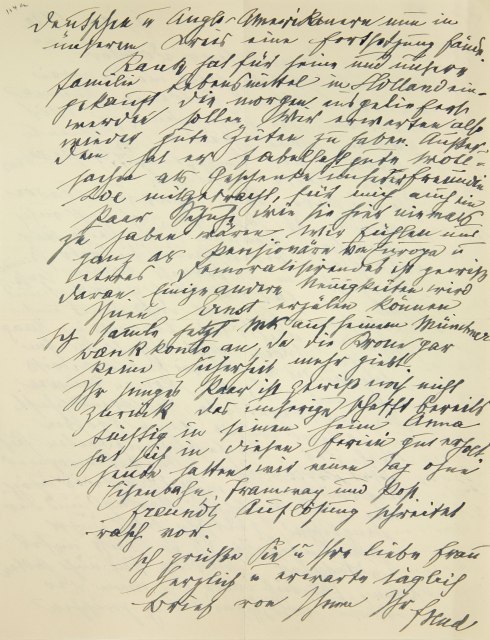 Deutschen u Anglo-Amerikanern nun in
unserem Kreis eine Fortsetzung fände.
Rank hat für seine und unsere
Familie Lebensmittel in Holland ein-
gekauft die morgen ausgeliefert
werden sollen. Wir erwarten also
wieder gute Zeiten zu haben. Außer-
dem hat er fabelhaft gute Woll-
sachen als Geschenke unserer Freundin
mitgebracht, für mich auch ein
Paar Schuhe wie sie hier niemals
zu haben wären. Wir fühlen uns
ganz als Pensionäre von Europa u
etwas Demoralisirendes ist gewiß
daran. Einige andere Neuigkeiten wird
Ihnen Ernst erzälen können
Ich samle jetzt Mk auf seinem Münchner
Bankkonto an, da die Krone gar
keine Sicherheit mehr giebt.
Ihr junges Paar ist gewiß noch nicht
zurück das unserige schafft bereits
tüchtig in seinem Heim. Anna
hat sich in diesen Ferien gut erholt.
Heute hatten wir einen Tag ohne
Eisenbahn, Tramway und Post.
Freundl Auflösung schreitet
rasch vor.
Ich grüße Sie u Ihre liebe Frau
herzlich u erwarte täglich
Brief von Ihnen Ihr Freud